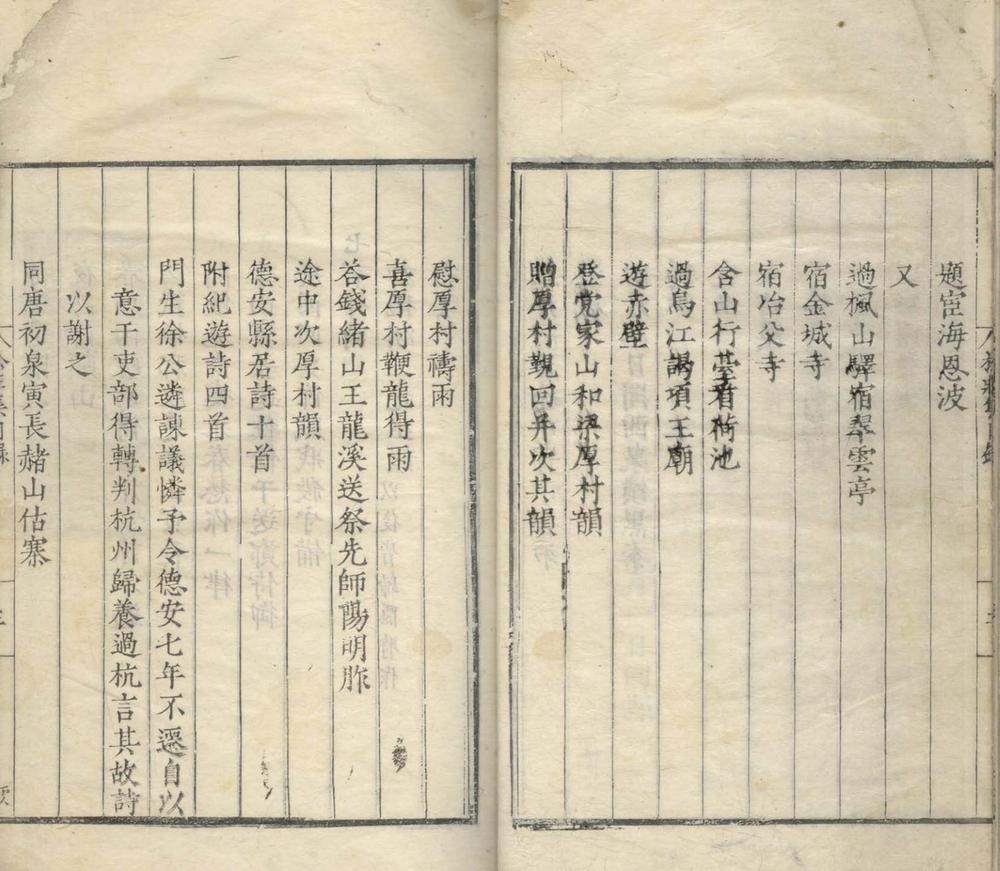 題宦海恩波
又
過楓山驛宿翠雲亭
宿金城寺
宿冶父寺
含山行臺看荷池
過烏江謁項王廟
遊赤壁
登党家山和梁厚村韻
贈厚村覲回并次其韻
慰厚村禱雨
喜厚村鞭龍得雨
荅錢緒山王龍溪送祭先師陽明胙
途中次厚村韻
德安縣居詩十首
附紀遊詩四首
門生徐公遴諫議憐予令德安七年不遷自以
意干吏部得轉判杭州歸養過杭言其故詩
以謝之
同唐初泉寅長赭山估寨